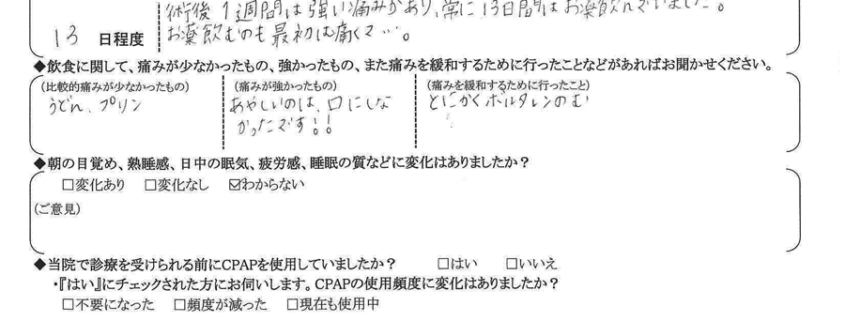 術後1週間は強い痛みがあり、常に13日間はお薬飲んでいました。
13 日程度 お薬飲むのも最初は痛くて…。
◆飲食に関して、痛みが少なかったもの、強かったもの、また痛みを緩和するために行ったことなどがあればお聞かせください。
(比較的痛みが少なかったもの) (痛みが強かったもの) (痛みを緩和するために行ったこと)
うどん、プリン あやしいのは、口にしな とにかくボルタレンのむ
かったです!!
◆朝の目覚め、熟睡感、日中の眠気、疲労感、睡眠の質などに変化はありましたか?
□変化あり □変化なし ☑わからない
(ご意見)
◆当院で診療を受けられる前にCPAPを使用していましたか? □はい □いいえ
・『はい』にチェックされた方にお伺いします。CPAPの使用頻度に変化はありましたか?
□不要になった □頻度が減った □現在も使用中